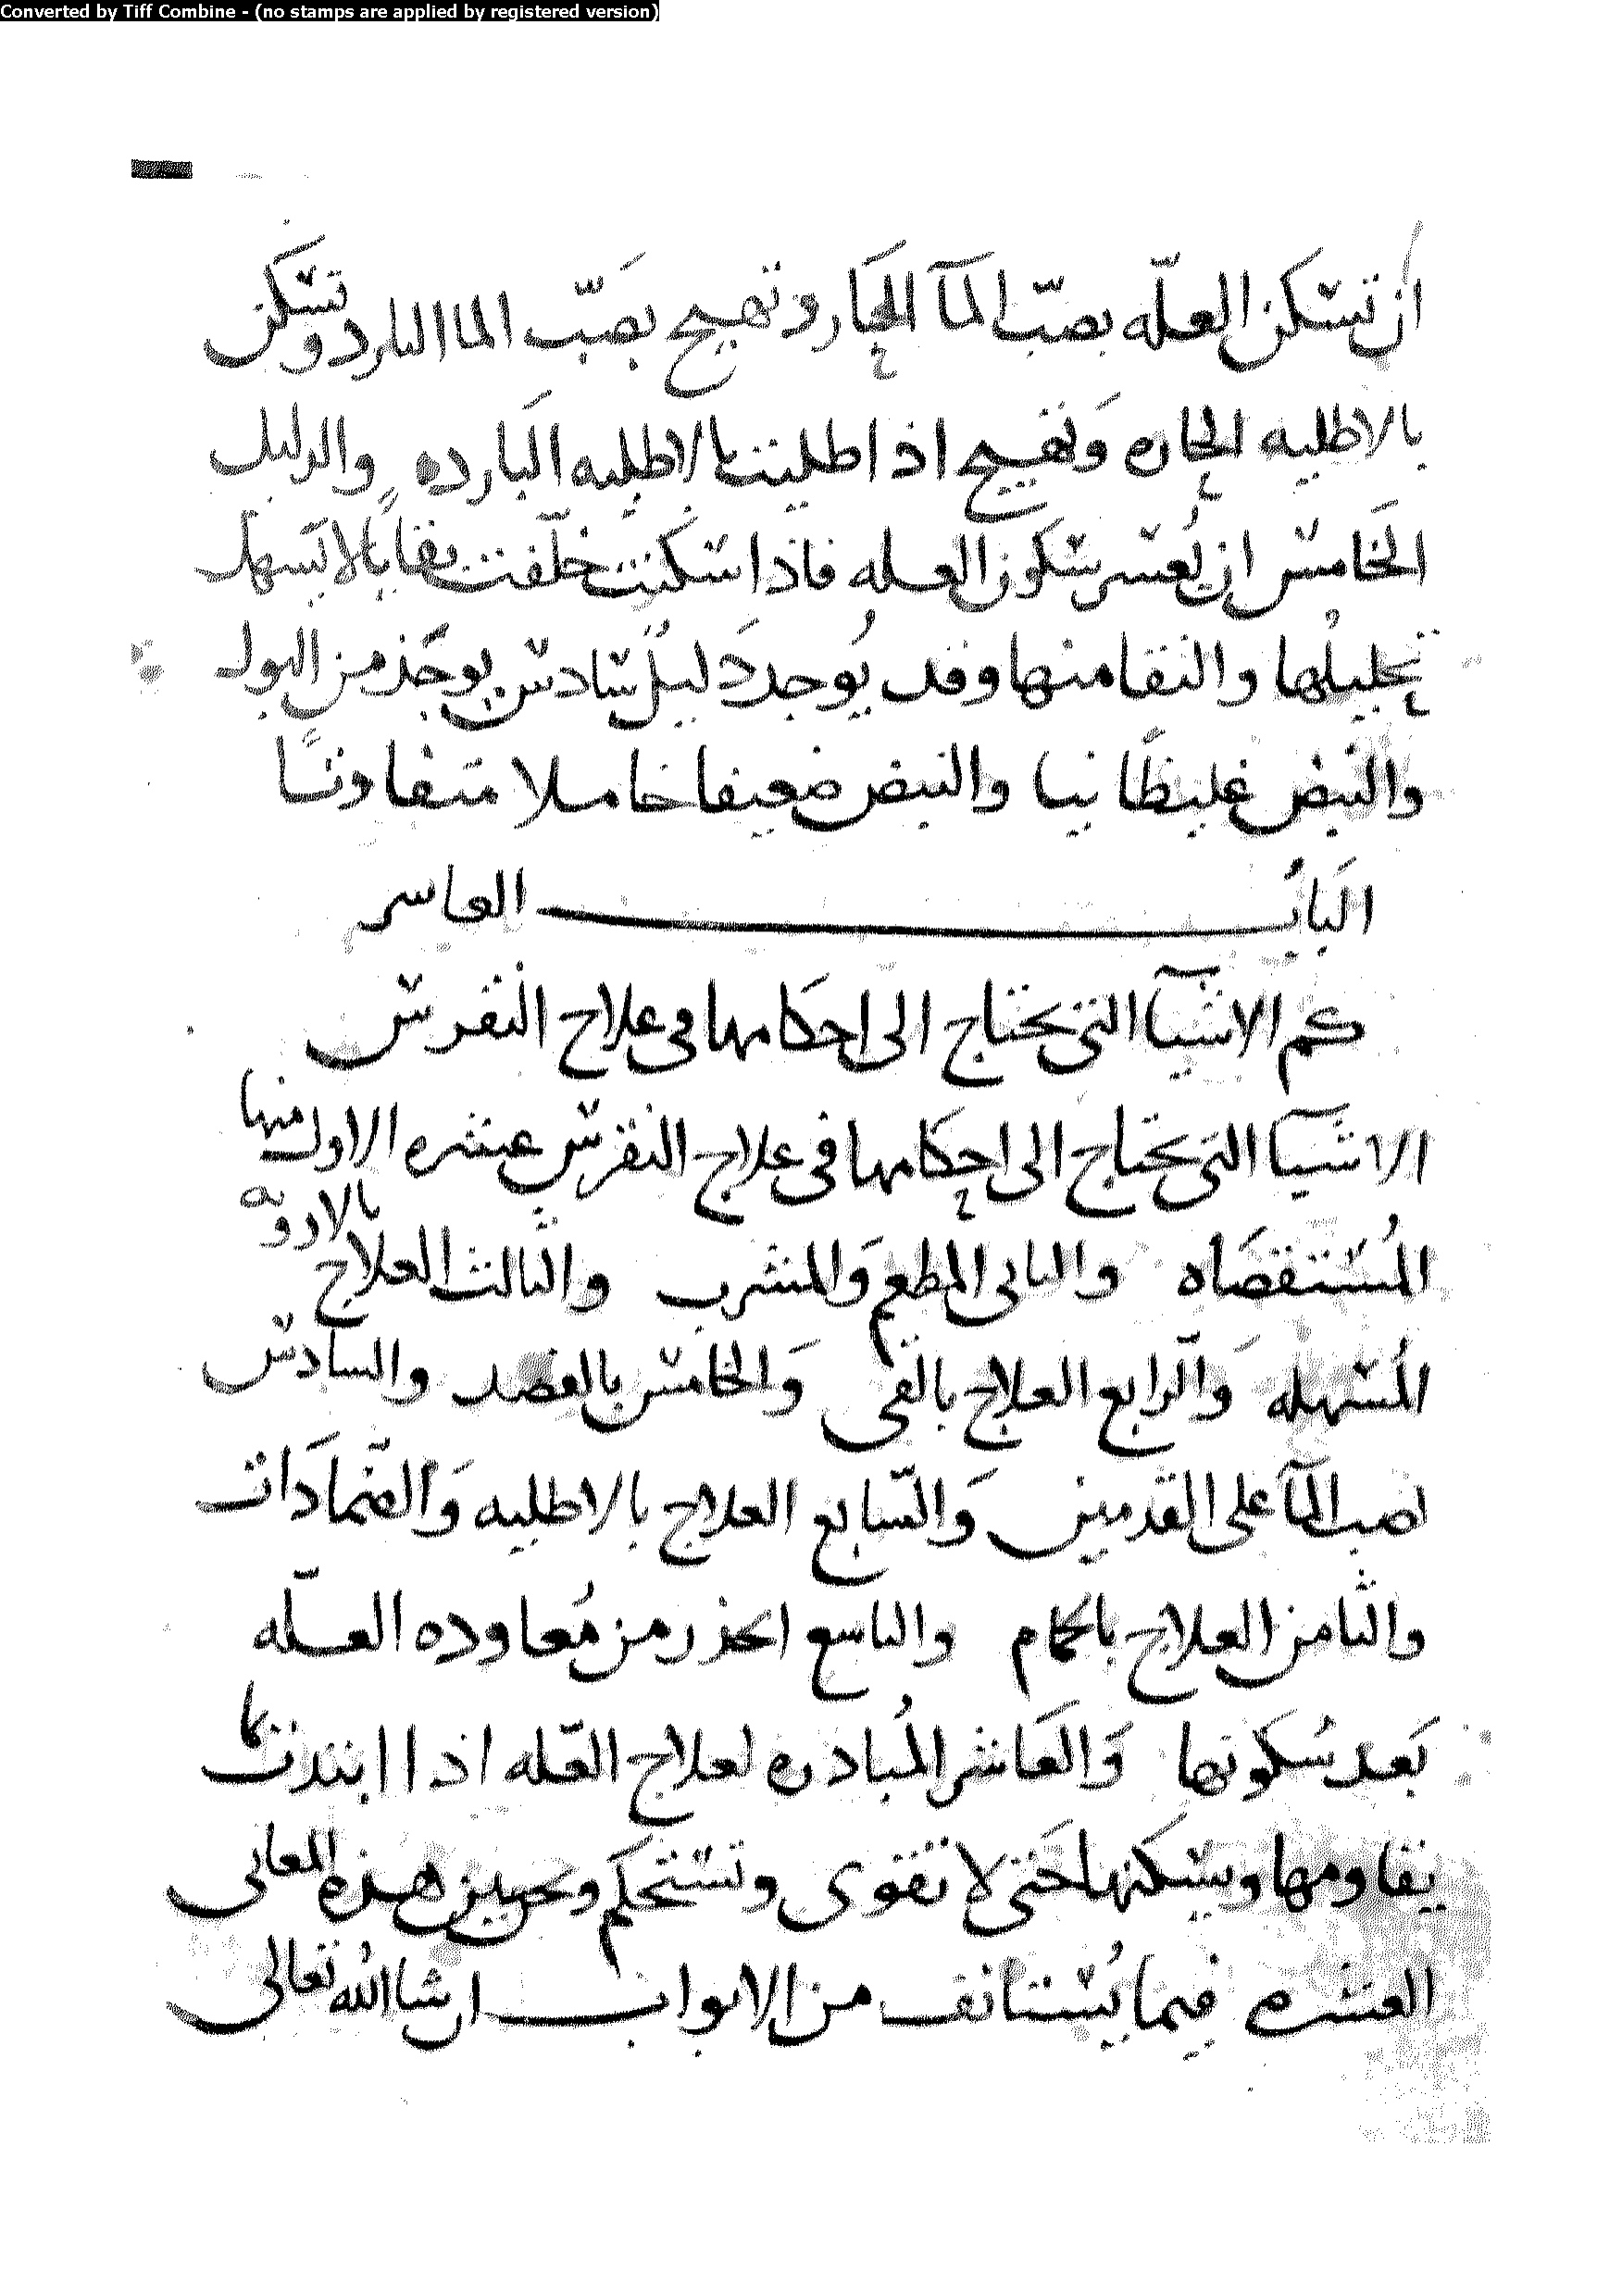 Converted by Tiff Combine - (no stamps are applied by registered version)
ان تسكن العلّه بصبّ المآ الحار وتهيج بصَبّ الما البارد وتسكن
بالاطليه الحاره وَتهيج اذا طليت بالاطليه البارده والدليل
الخَامس ان يُعسر سكون العله فاذا سكنت خلّفت بقايا لا يسهل
تحليلها والنقا منها وقد يُوجد دَليلٌ سادس يوخذ من البول
والنبض غليظًا نيا والنبض ضعيفا خاملا متفاوتًا
البَابُ العاشر
كم الاشيآ التى يحتاج الى احكامها فى علاج النقرس
الاشيآ التى يحتاج الى احكامها فى علاج النقرس عشره الاول منها
المُستقصَاه والثانى المطعم وَالمشرب والثالث العلاج بالادويه
المُسهله وَالرابع العلاج بالقى وَالخامس بالفصد والسادس
نصب المآ على القدمين وَالسّابع العلاج بالاطليه وَالضّمادَات
والثامن العلاج بالحمام والتاسع الحذر من مُعاوده العلّه
بَعد سُكونها وَالعَاشر المُبادره لعلاج العّله اذا ابتدت بما
يقاومها ويسكنها حَتى لا تقوى وتستحكم ونحن نبين هذه المعانى
العشره فيما يُستانف من الابواب ان شا الله تعالى